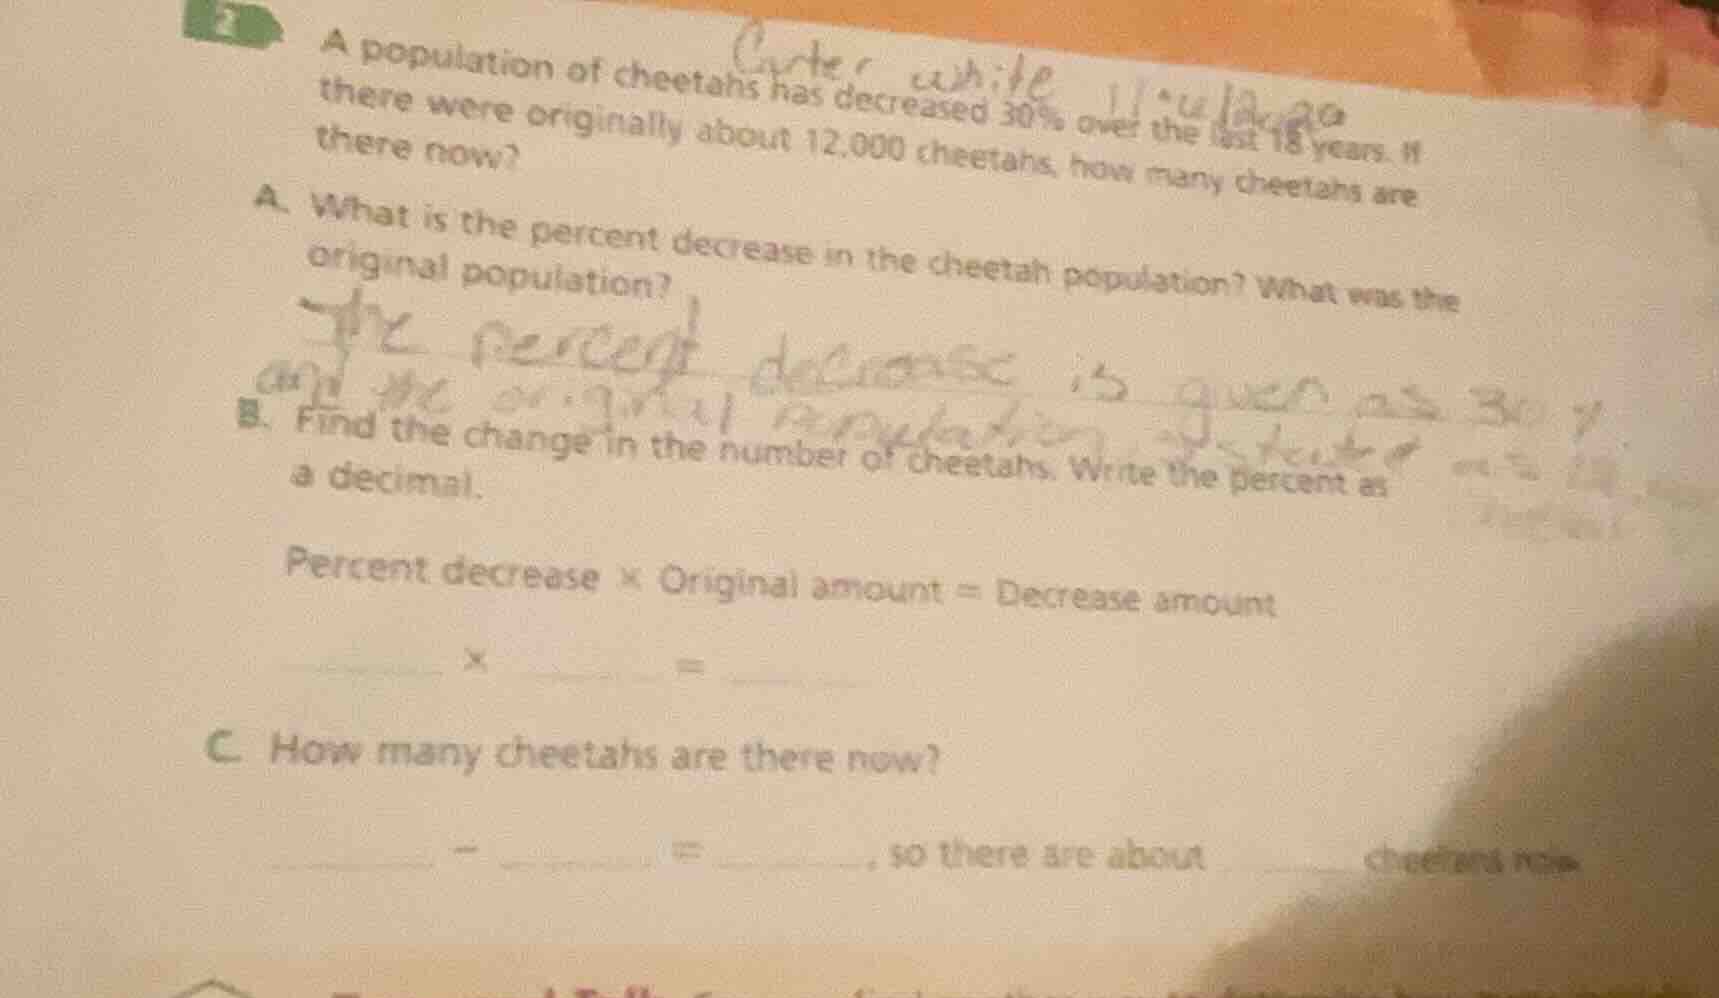 2
Carter white
A population of cheetahs has decreased 30% over the last 18 years. If
there were originally about 12,000 cheetahs, how many cheetahs are
there now?
A. What is the percent decrease in the cheetah population? What was the
original population?
The percent decrease is given as 30 %
and the original population is stated as
B. Find the change in the number of cheetahs. Write the percent as
a decimal.
Percent decrease × Original amount = Decrease amount
× =
C. How many cheetahs are there now?
− = , so there are about cheetahs now.